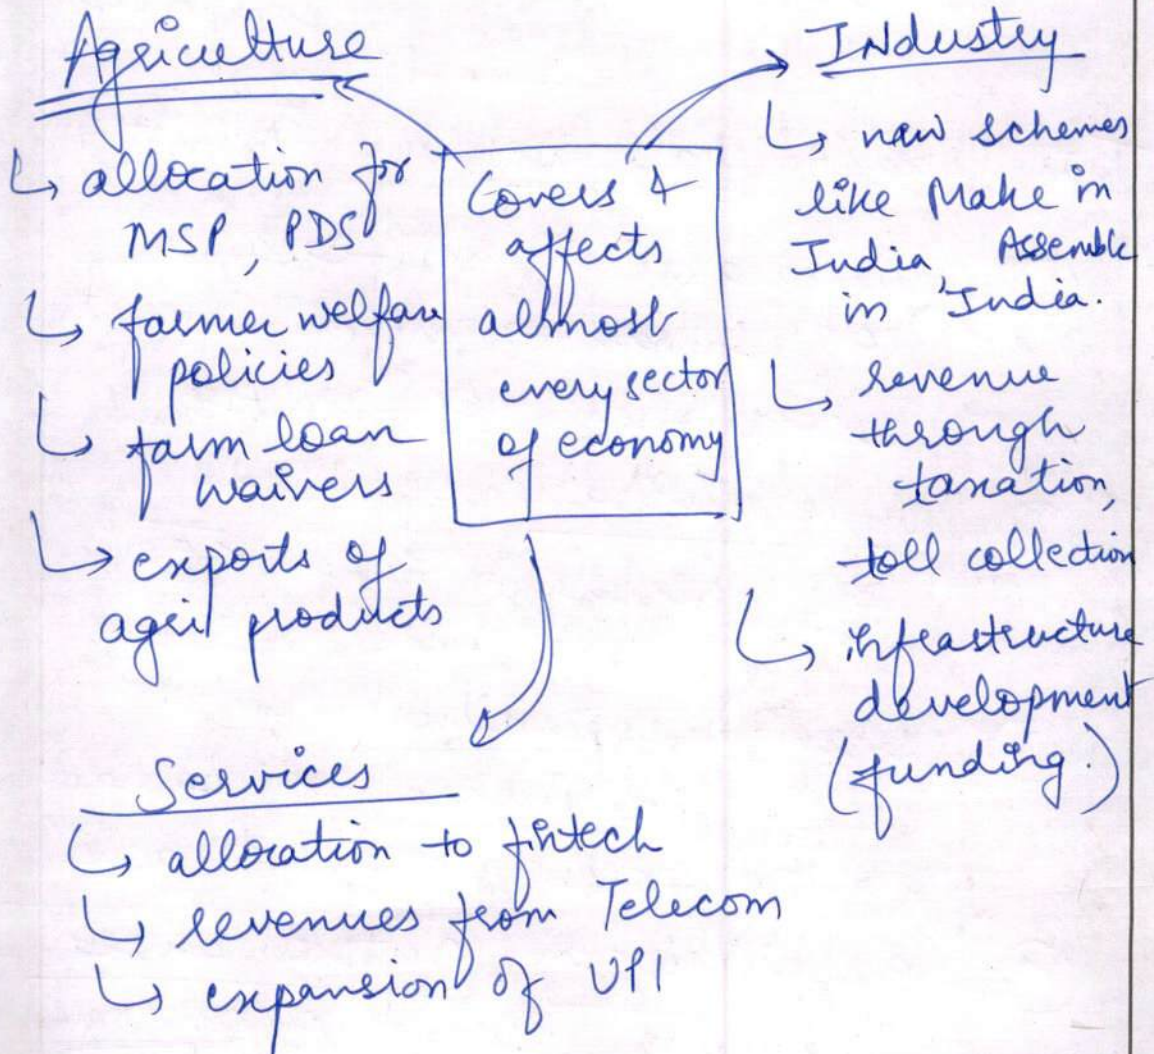 Agriculture
↳ allocation for
MSP, PDS
↳ farmer welfare
policies
↳ farm loan
waivers
↳ exports of
agri products
Covers &
affects
almost
every sector
of economy
Industry
↳ new schemes
like Make in
India, Assemble
in India.
↳ revenue
through
taxation,
toll collection
↳ infrastructure
development
(funding.)
Services
↳ allocation to fintech
↳ revenues from Telecom
↳ expansion of UPI